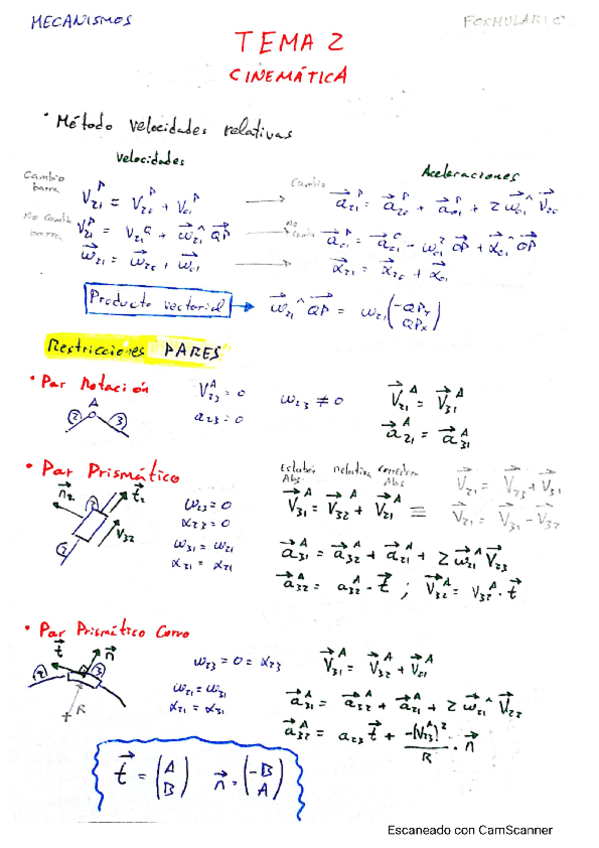 MECANISMOS FORMULARIO
TEMA 2
CINEMÁTICA
· Método velocidades relativas
Velocidades Aceleraciones
Cambio barra V⃗₂₁ᴾ = V⃗₂₀ᴾ + V⃗₀₁ᴾ → Cambio a⃗₂₁ᴾ = a⃗₂₀ᴾ + a⃗₀₁ᴾ + 2 ω⃗₀₁ ^ V⃗₂₀
No cambio barra V⃗₂₁ᴾ = V₂₁�Q + ω⃗₂₁ ^ QP⃗ → No cambio
ω⃗₂₁ = ω⃗₂₀ + ω⃗₀₁ → α⃗₂₁ = α⃗₂₀ + α⃗₀₁
Producto vectorial → ω⃗₂₁ ^ QP⃗ = ω₂₁ (-QPy QPx)
Restricciones PARES
· Par Rotación V₂₃ᴬ = 0 ω₂₃ ≠ 0 V⃗₂₁ᴬ = V⃗₃₁ᴬ
A a₂₃ = 0 a⃗₂₁ᴬ = a⃗₃₁ᴬ
2 3
· Par Prismático
n⃗₂ 3 t⃗₂ V₃₂ 2
ω₂₃ = 0
α₂₃ = 0
ω₃₁ = ω₂₁
α₃₁ = α₂₁
Abs. relativa Abs
V⃗₃₁ᴬ = V⃗₃₂ᴬ + V⃗₂₁ᴬ ≡ V⃗₂₁ = V⃗₂₃ + V⃗₃₁
V⃗₂₁ = V⃗₃₁ - V⃗₃₂
a⃗₃₁ᴬ = a⃗₃₂ᴬ + a⃗₂₁ᴬ + 2 ω⃗₂₁ ^ V⃗₂₃
a⃗₃₂ᴬ = a₃₂ᴬ · t⃗ ; V⃗₃₂ᴬ = V₃₂ᴬ · t⃗
· Par Prismático Curvo
t⃗ n⃗ 2 3 R
ω₂₃ = 0 = α₂₃ V⃗₃₁ᴬ = V⃗₃₂ᴬ + V⃗₂₁ᴬ
ω₂₁ = ω₃₁
α₂₁ = α₃₁
a⃗₃₁ᴬ = a⃗₃₂ᴬ + a⃗₂₁ᴬ + 2 ω⃗₂₁ ^ V⃗₂₂
a⃗₃₂ᴬ = a₂₃ t⃗ + -(V₂₃ᴬ)²/R · n⃗
t⃗ = (A B) n⃗ = (-B A)
Escaneado con CamScanner